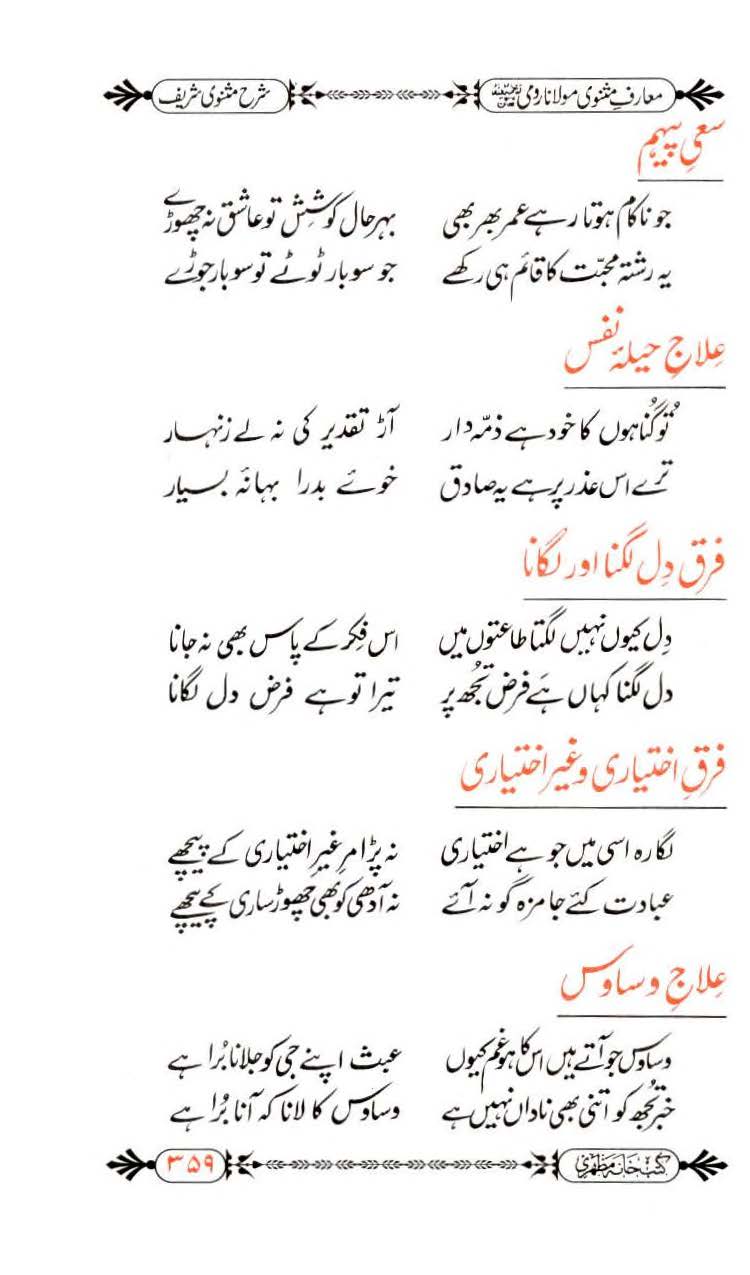 معارفِ مثنوی مولانا رومی رحمۃ اللہ علیہ
شرح مثنوی شریف
سعیِ پیہم
جو ناکام ہوتا رہے عمر بھر بھی بہرحال کوشِش تو عاشق نہ چھوڑے
یہ رشتہ محبّت کا قائم ہی رکھے جو سو بار ٹوٹے تو سو بار جوڑے
عِلاجِ حیلۂ نفس
تُو گُناہوں کا خود ہے ذمّہ دار آڑ تقدیر کی نہ لے زنہار
ترے اس عذر پر ہے یہ صادق خوئے بدرا بہانۂ بسیار
فرق دِل لگنا اور لگانا
دِل کیوں نہیں لگتا طاعتوں میں اس فِکر کے پاس بھی نہ جانا
دل لگنا کہاں ہَے فرض تجُھ پر تیرا تو ہے فرض دل لگانا
فرقِ اختیاری و غیر اختیاری
لگا رہ اسی میں جو ہے اختیاری نہ پڑ امرِ غیرِ اختیاری کے پیچھے
عبادت کئے جا مزہ گو نہ آئے نہ آدھی کو بھی چھوڑ ساری کے پیچھے
عِلاجِ وساوس
وساوس جو آتے ہیں اس کا ہو غم کیوں عبث اپنے جی کو جلانا بُرا ہے
خبر تجُھ کو اتنی بھی ناداں نہیں ہے وساوس کا لانا کہ آنا بُرا ہے
کتب خانہ مظہری
۳۵۹